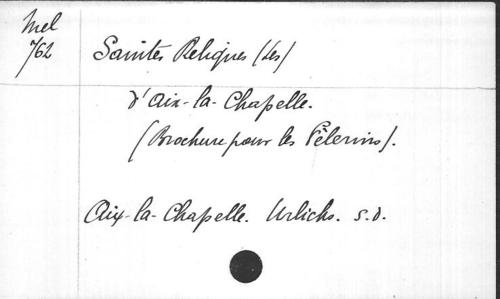 Mel
762
Saintes Reliques (Les)
d'Aix-la-Chapelle.
(Brochure pour les Pèlerins).
Aix-la-Chapelle. Urlichs. s.d.